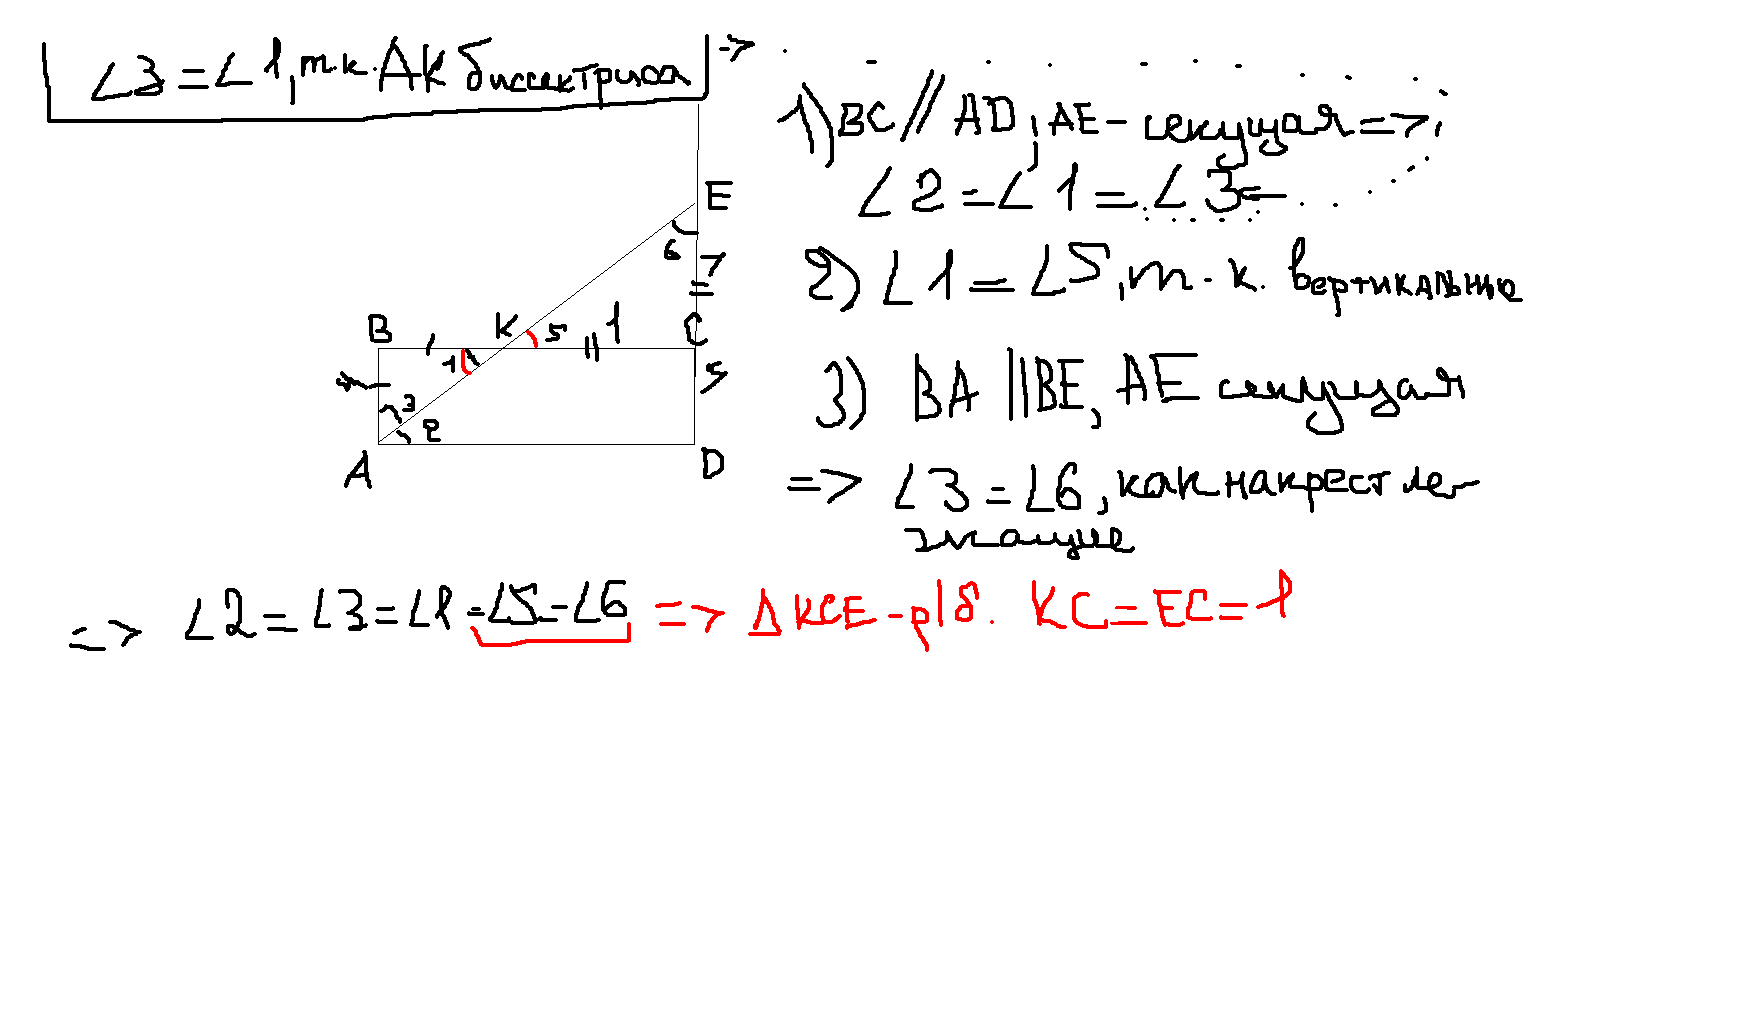 ∠3 = ∠1, т.к. АК биссектриса =>
1) BC // AD, AE - секущая =>
∠2 = ∠1 = ∠3
2) ∠1 = ∠5, т.к. вертикальные
3) BA || BE, AE секущая
=> ∠3 = ∠6, как накрест ле-
жащие
E
6
7
B
K
5
1
C
1
5
3
2
A
D
=> ∠2 = ∠3 = ∠1 = ∠5 = ∠6 => Δ KCE - р/б. KC = EC = 1